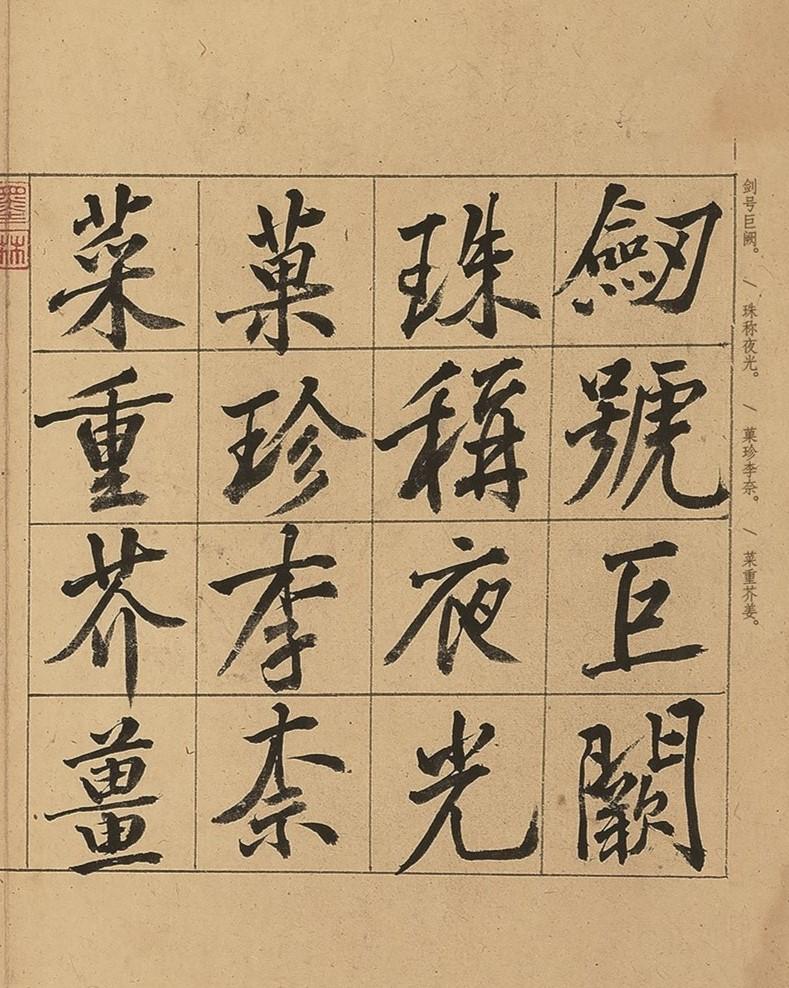 剑号巨阙。 / 珠称夜光。 / 菓珍李奈。 / 菜重芥姜。
劒號巨闕
珠稱夜光
菓珍李柰
菜重芥薑
墨林